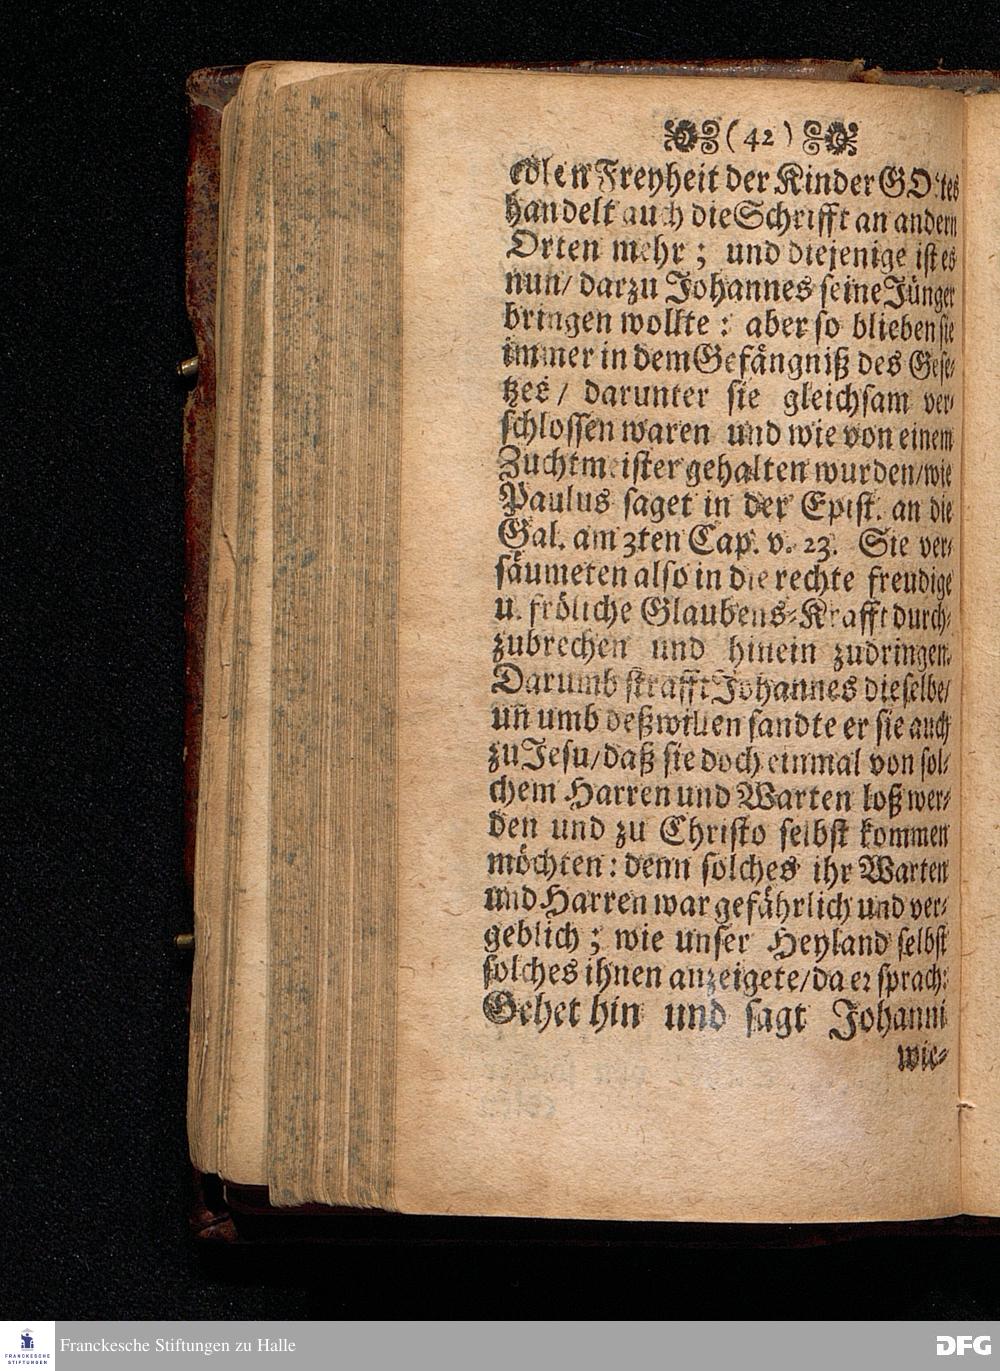 (42)
edlen Freyheit der Kinder GOttes
handelt auch die Schrifft an andern
Orten mehr; und diejenige ist es
nun/ darzu Johannes seine Jünger
bringen wollte: aber so blieben sie
immer in dem Gefängniß des Gese-
tzes/ darunter sie gleichsam ver-
schlossen waren und wie von einem
Zuchtmeister gehalten wurden/wie
Paulus saget in der Epist. an die
Gal. am 3ten Cap. v. 23. Sie ver-
säumeten also in die rechte freudige
u. fröliche Glaubens-Krafft durch-
zubrechen und hinein zudringen.
Darumb strafft Johannes dieselbe/
un̄ umb deßwillen sandte er sie auch
zu Jesu/daß sie doch einmal von sol-
chem Harren und Warten loß wer-
den und zu Christo selbst kommen
möchten: denn solches ihr Warten
und Harren war gefährlich und ver-
geblich; wie unser Heyland selbst
solches ihnen anzeigete/da er sprach:
Gehet hin und sagt Johanni
wie-
FRANCKESCHE STIFTUNGEN
Franckesche Stiftungen zu Halle
DFG